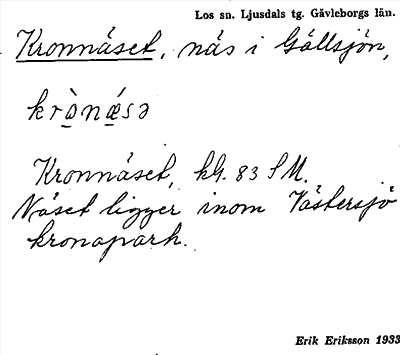 Los sn. Ljusdals tg. Gävleborgs län.
Kronnäset, näs i Gällsjön,
krònǽsə
Kronnäset, kbl. 83 SM.
Näset ligger inom Västersjö
kronopark.
Erik Eriksson 1933